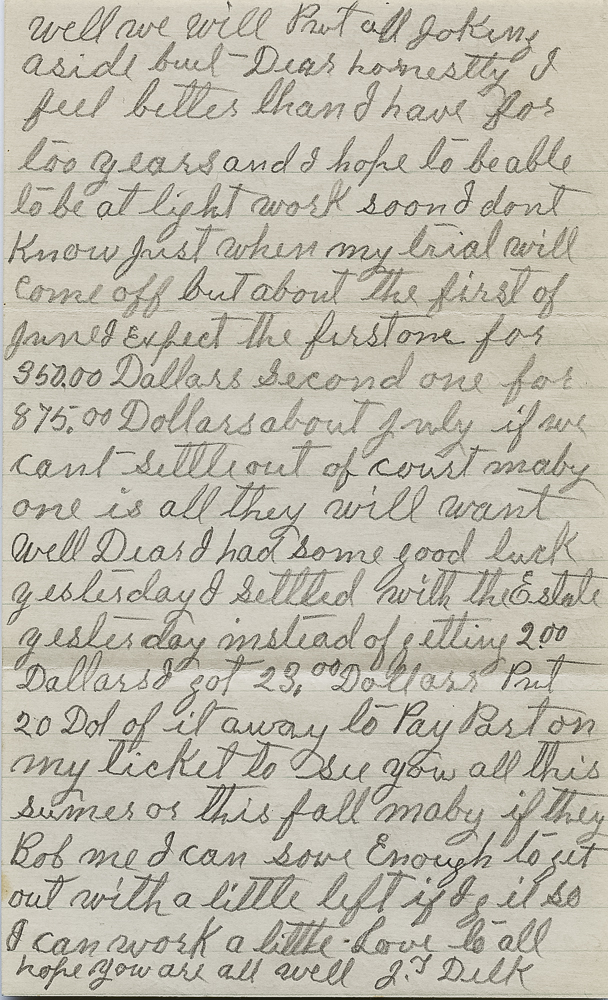 well we will Put all Joking
aside but Dear honestty I
feel better than I have for
too years and I hope to be able
to be at light work soon I dont
Know Just when my trial will
Come off but about the first of
June I Expect the first one for
350.00 Dallars Second one for
875.00 Dollars about July if we
cant Settle out of court maby
one is all they will want
Well Dear I had some good luck
yesterday I Settled with the Estate
yesterday instead of getting 2.00
Dallars I got 23.00 Dollars Put
20 Dol of it away to Pay Part on
my ticket to see you all this
sumer or this fall maby if they
Rob me I can save Enough to git
out with a little left if I git so
I can work a little. Love to all
hope you are all well J.T Delk